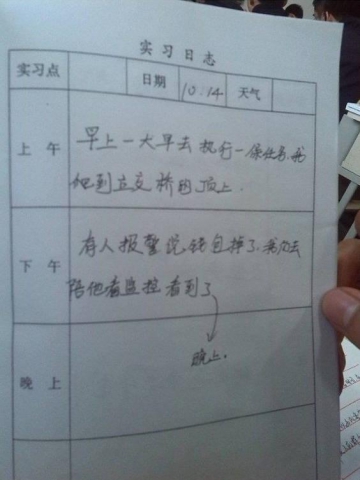 实习日志
实习点 日期 10.14 天气
上午 早上一大早去执行一保任务,我
爬到立交桥的顶上.
下午 有人报警说钱包掉了,我们去
陪他看监控看到了
晚上.
晚上